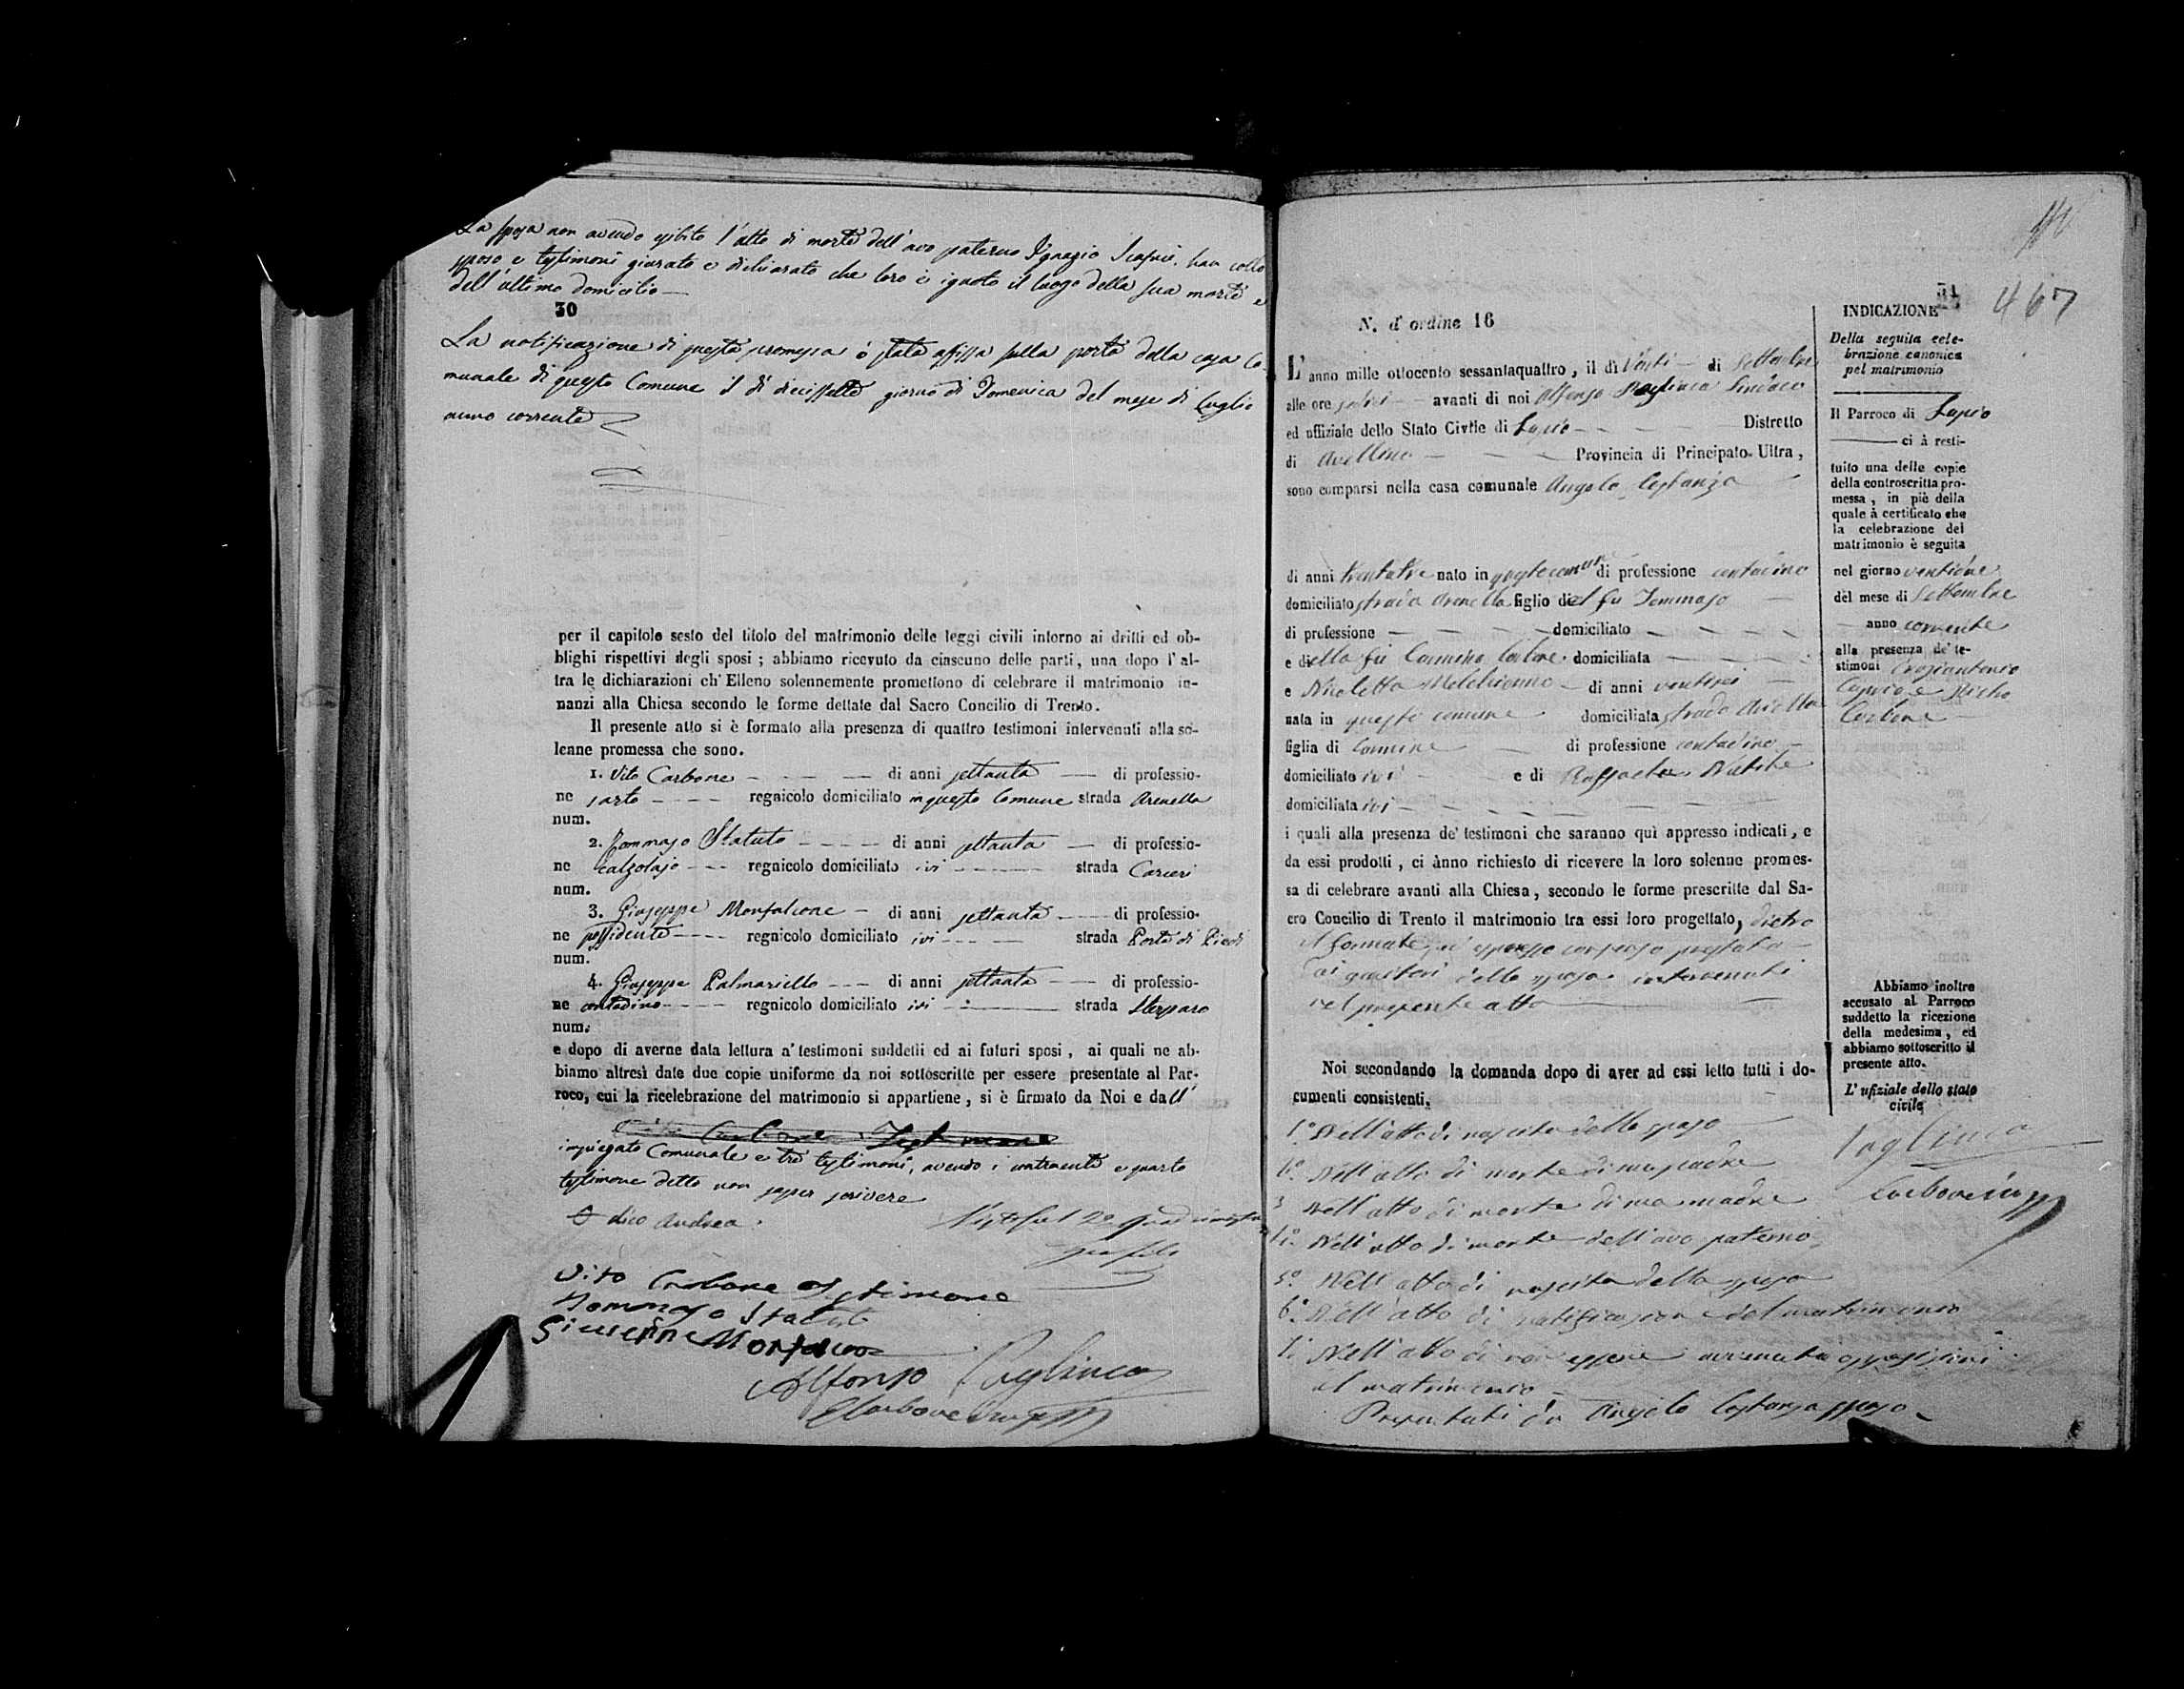 La sposa non avendo esibito l'atto di morte dell'avo paterno Ignazio han collo
sposo e testimoni giurato e dichiarato che loro è ignoto il luogo della sua morte e
dell'ultimo domicilio
30
La notificazione di questa promessa è stata affissa sulla porta della casa Co-
munale di questo Comune il dì diecissette giorno di Domenica del mese di Luglio
anno corrente
per il capitolo sesto del titolo del matrimonio delle leggi civili intorno ai dritti ed ob-
blighi rispettivi degli sposi ; abbiamo ricevuto da ciascuno delle parti, una dopo l'al-
tra le dichiarazioni ch'Elleno solennemente promettono di celebrare il matrimonio in-
nanzi alla Chiesa secondo le forme dettate dal Sacro Concilio di Trento.
Il presente atto si è formato alla presenza di quattro testimoni intervenuti alla so-
lenne promessa che sono.
1. Vito Carbone di anni settanta di professio-
ne sarto regnicolo domiciliato in questo Comune strada Arenella
num.
2. Tommaso Statuto di anni settanta di professio-
ne calzolajo regnicolo domiciliato ivi strada Carceri
num.
3. Giuseppe Monfalcone di anni settanta di professio-
ne possidente regnicolo domiciliato ivi strada Porta di Piedi
num.
4. Giuseppe Palmariello di anni settanta di professio-
ne contadino regnicolo domiciliato ivi strada
num.
e dopo di averne data lettura a' testimoni suddetti ed ai futuri sposi , ai quali ne ab-
biamo altresì date due copie uniforme da noi sottoscritte per essere presentate al Par-
roco, cui la ricelebrazione del matrimonio si appartiene , si è firmato da Noi e dall'
impiegato Comunale e tre testimoni, avendo i contraenti e quarto
testimone detto non saper scrivere
dico Andrea.
Vito Carbone Testimone
Tommaso Statuto
Giuseppe Monfalcone
Alfonso Paglinca
Carbone
467
31
N. d'ordine 16
L'anno mille ottocento sessantaquattro , il dì Venti di Settembre
alle ore avanti di noi Alfonso Paglinca Sindaco
ed uffiziale dello Stato Civile di Lapio Distretto
di Avellino Provincia di Principato Ultra ,
sono comparsi nella casa comunale Angelo Costanza
di anni trentatre nato in questo comune di professione contadino
domiciliato strada Arenella figlio del fu Tommaso
di professione domiciliato
e della fu Carmina Carbone domiciliata
e Nicoletta Melchionno di anni ventisei
nata in questo comune domiciliata strada
figlia di Carmine di professione contadino
domiciliato ivi e di Raffaela
domiciliata ivi
i quali alla presenza de' testimoni che saranno quì appresso indicati , e
da essi prodotti , ci ànno richiesto di ricevere la loro solenne promes-
sa di celebrare avanti alla Chiesa , secondo le forme prescritte dal Sa-
cro Concilio di Trento il matrimonio tra essi loro progettato, dietro
il formale, ed espresso consenso prestato
dai genitori della sposa intervenuti
nel presente atto
Noi secondando la domanda dopo di aver ad essi letto tutti i do-
cumenti consistenti,
1.° Nell'atto di nascita dello sposo
2.° Nell'atto di morte di suo padre
3 Nell'atto di morte di sua madre
4.° Nell'atto di morte dell'avo paterno
5.° Nell'atto di nascita della sposa
6.° Nell'atto di notificazione del matrimonio
7. Nell'atto di non essere avvenute opposizioni
al matrimonio
Presentati da Angelo Costanza sposo
INDICAZIONE
Della seguita cele-
brazione canonica
pel matrimonio
Il Parroco di Lapio
ci à resti-
tuito una delle copie
della controscritta pro-
messa , in piè della
quale à certificato che
la celebrazione del
matrimonio è seguita
nel giorno ventidue
del mese di Settembre
anno corrente
alla presenza de' te-
stimoni
Carbone
Abbiamo inoltre
accusato al Parroco
suddetto la ricezione
della medesima , ed
abbiamo sottoscritto il
presente atto.
L'ufiziale dello stato
civile
Paglinca
Carbone